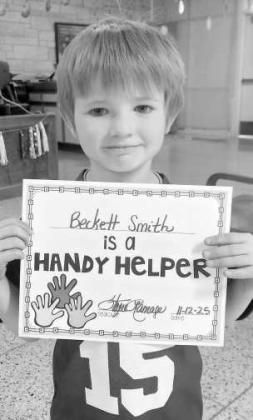 Beckett Smith
is a
HANDY HELPER
11-12-25
TEACHER
DATE
15